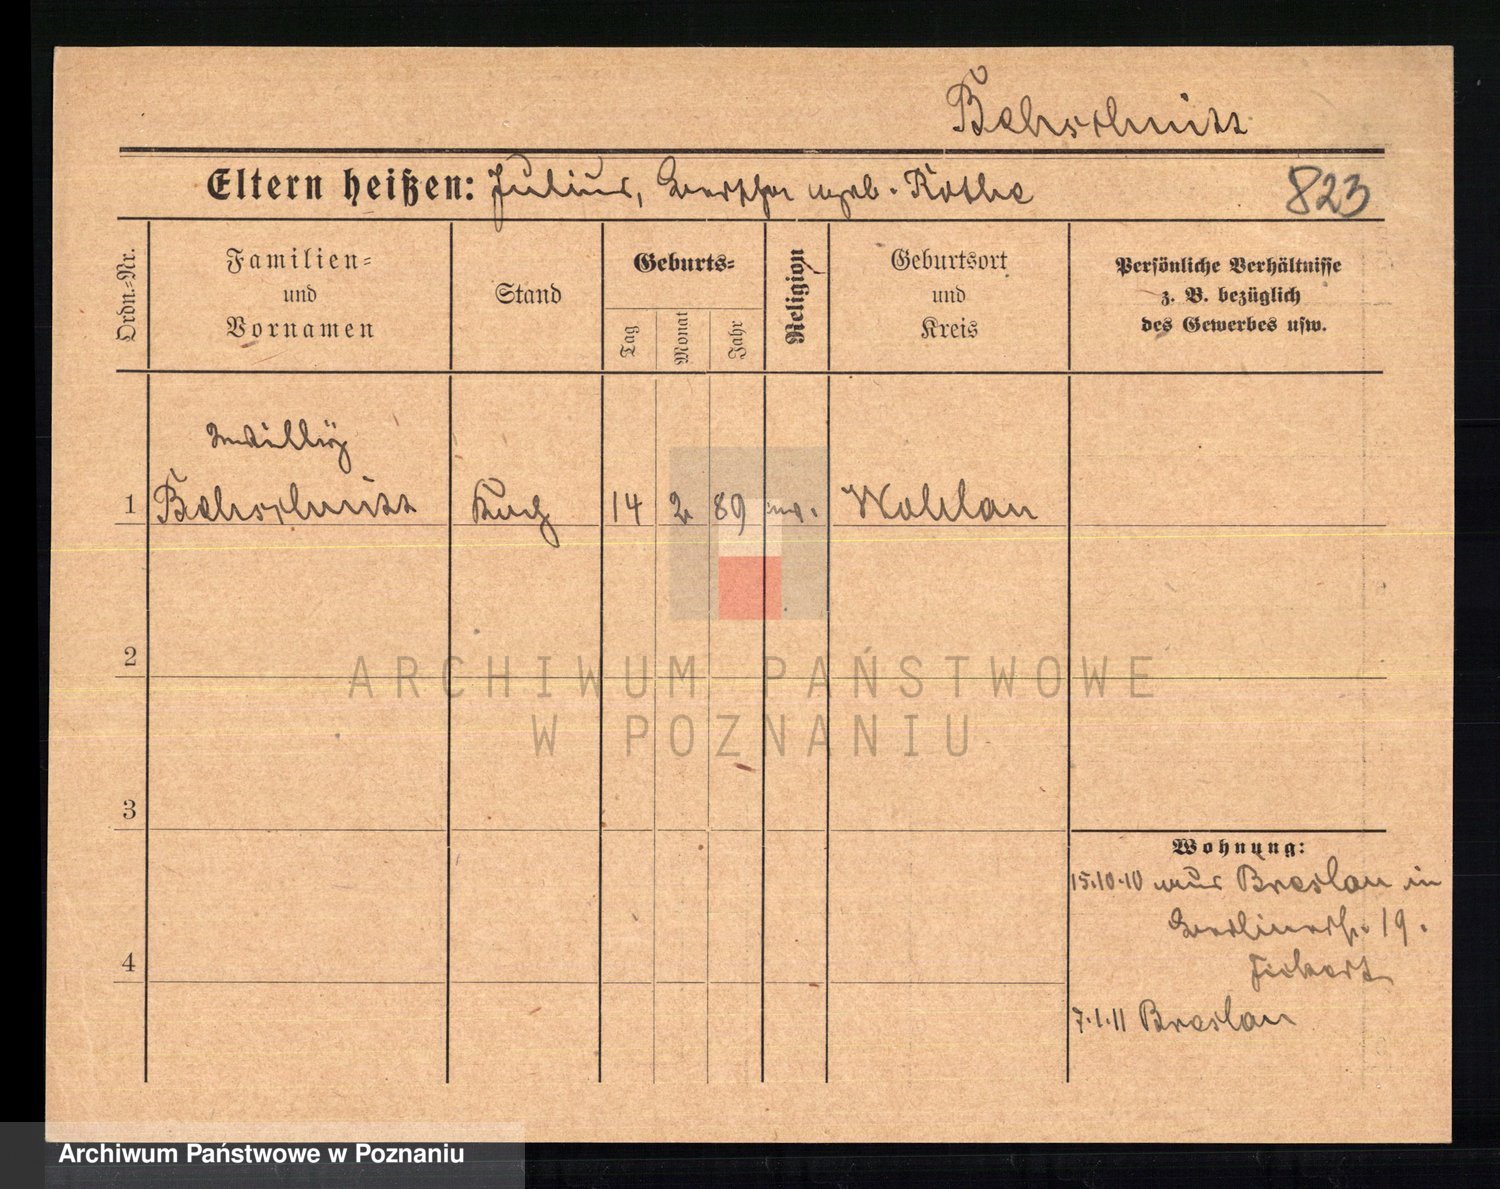 Bahrschmitt
Eltern heißen: Julius, Bertha geb. Rothe
823
Ordn.-Nr.
Familien-
und
Vornamen
Stand
Geburts-
Tag
Monat
Jahr
Religion
Geburtsort
und
Kreis
Persönliche Verhältnisse
z. B. bezüglich
des Gewerbes usw.
Willy
1 14 2 89 Wohlau
2
3
4
ARCHIWUM PAŃSTWOWE
W POZNANIU
Wohnung:
15.10.10 aus Breslau in
Berlinerstr. 19.
7.1.11 Breslau
Archiwum Państwowe w Poznaniu